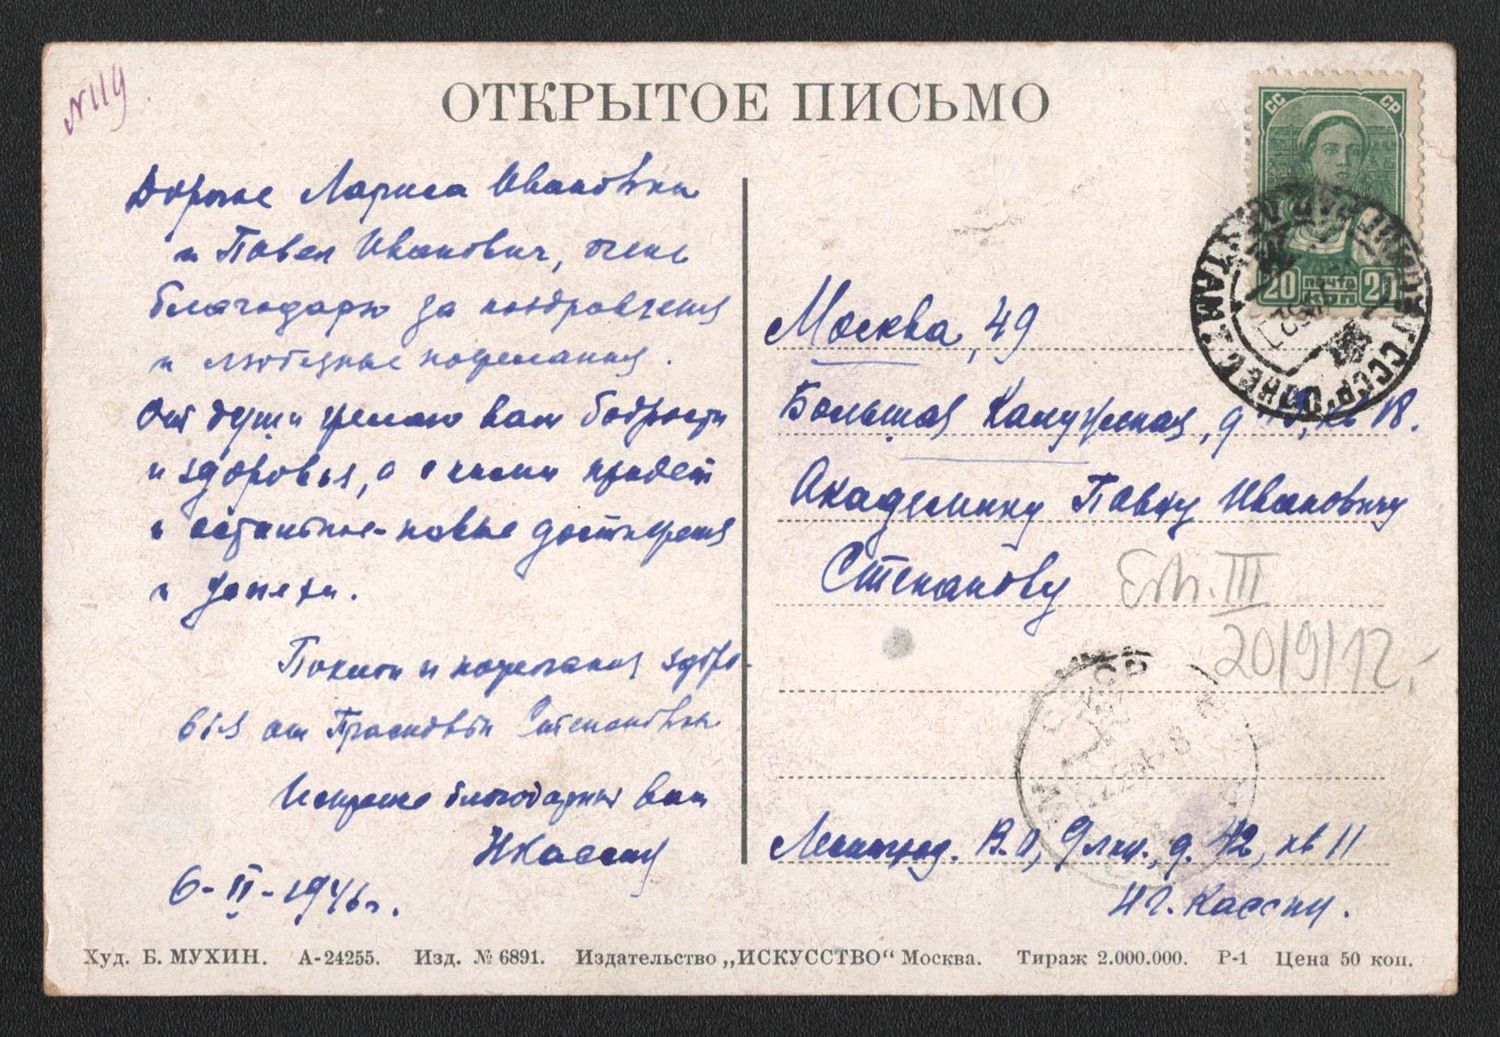 № 119
ОТКРЫТОЕ ПИСЬМО
СС СР
20 ПОЧТА 20
КОП
Дорогие Лариса Ивановна
и Павел Иванович, очень
благодарю за поздравления
и любезные пожелания.
От души желаю вам бодрости
и здоровья, а с ними придет
и остальное - новые достижения
и успехи.
Поклон и пожелания здоро-
вья от Прасковьи Степановны
Искренне благодарный вам
НКассин
6-II-1946 г.
Москва, 49
Большая Калужская, д 13, кв 18.
Академику Павлу Ивановичу
Степанову
III
20/9/12,-
Ленинград. В.О, 9 лин., д. 42, кв 11
НГ. Кассин.
Худ. Б. МУХИН. А-24255. Изд. № 6891. Издательство „ИСКУССТВО“ Москва. Тираж 2.000.000. Р-1 Цена 50 коп.